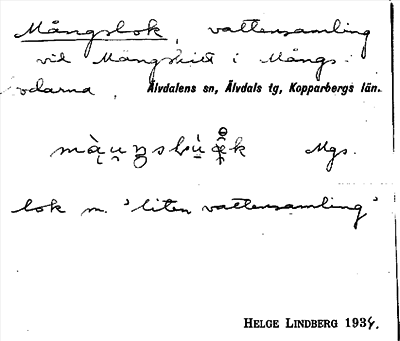 Mångsbok, vattensamling
vid Mångsidet i Mångs-
odarna, Älvdalens sn, Älvdals tg, Kopparbergs län.
Mgs.
bok m. 'liten vattensamling'
HELGE LINDBERG 1934.